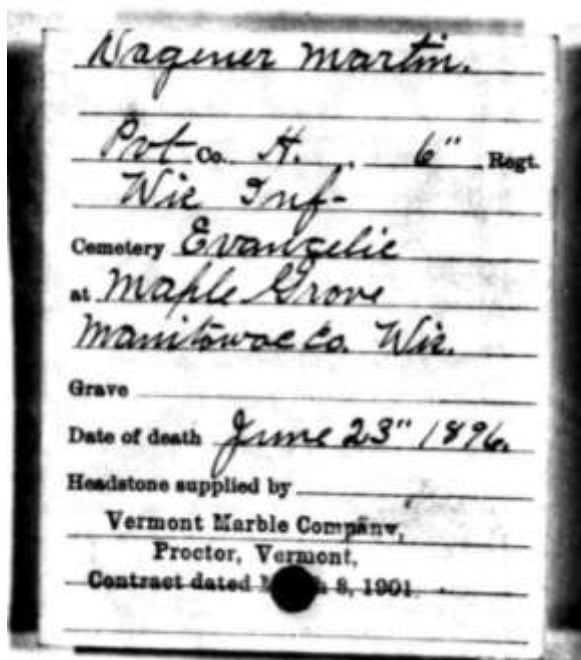 Wagener Martin.
Pvt Co. H. , 6" Regt.
Wis Inf-
Cemetery Evangelic
at Maple Grove
Manitowoc Co. Wis.
Grave
Date of death June 23" 1896.
Headstone supplied by
Vermont Marble Company,
Proctor, Vermont,
Contract dated 8, 1901.